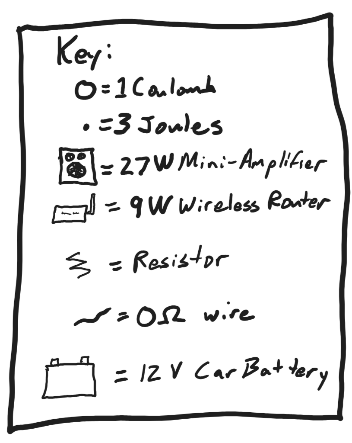 Key:
O = 1 Coulomb
• = 3 Joules
= 27W Mini-Amplifier
= 9W Wireless Router
= Resistor
= 0Ω wire
= 12 V Car Battery